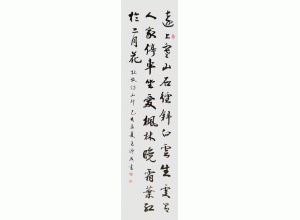 遠上寒山石徑斜白雲生處有
人家停車坐愛楓林晚霜葉紅
於二月花
杜牧詩山行